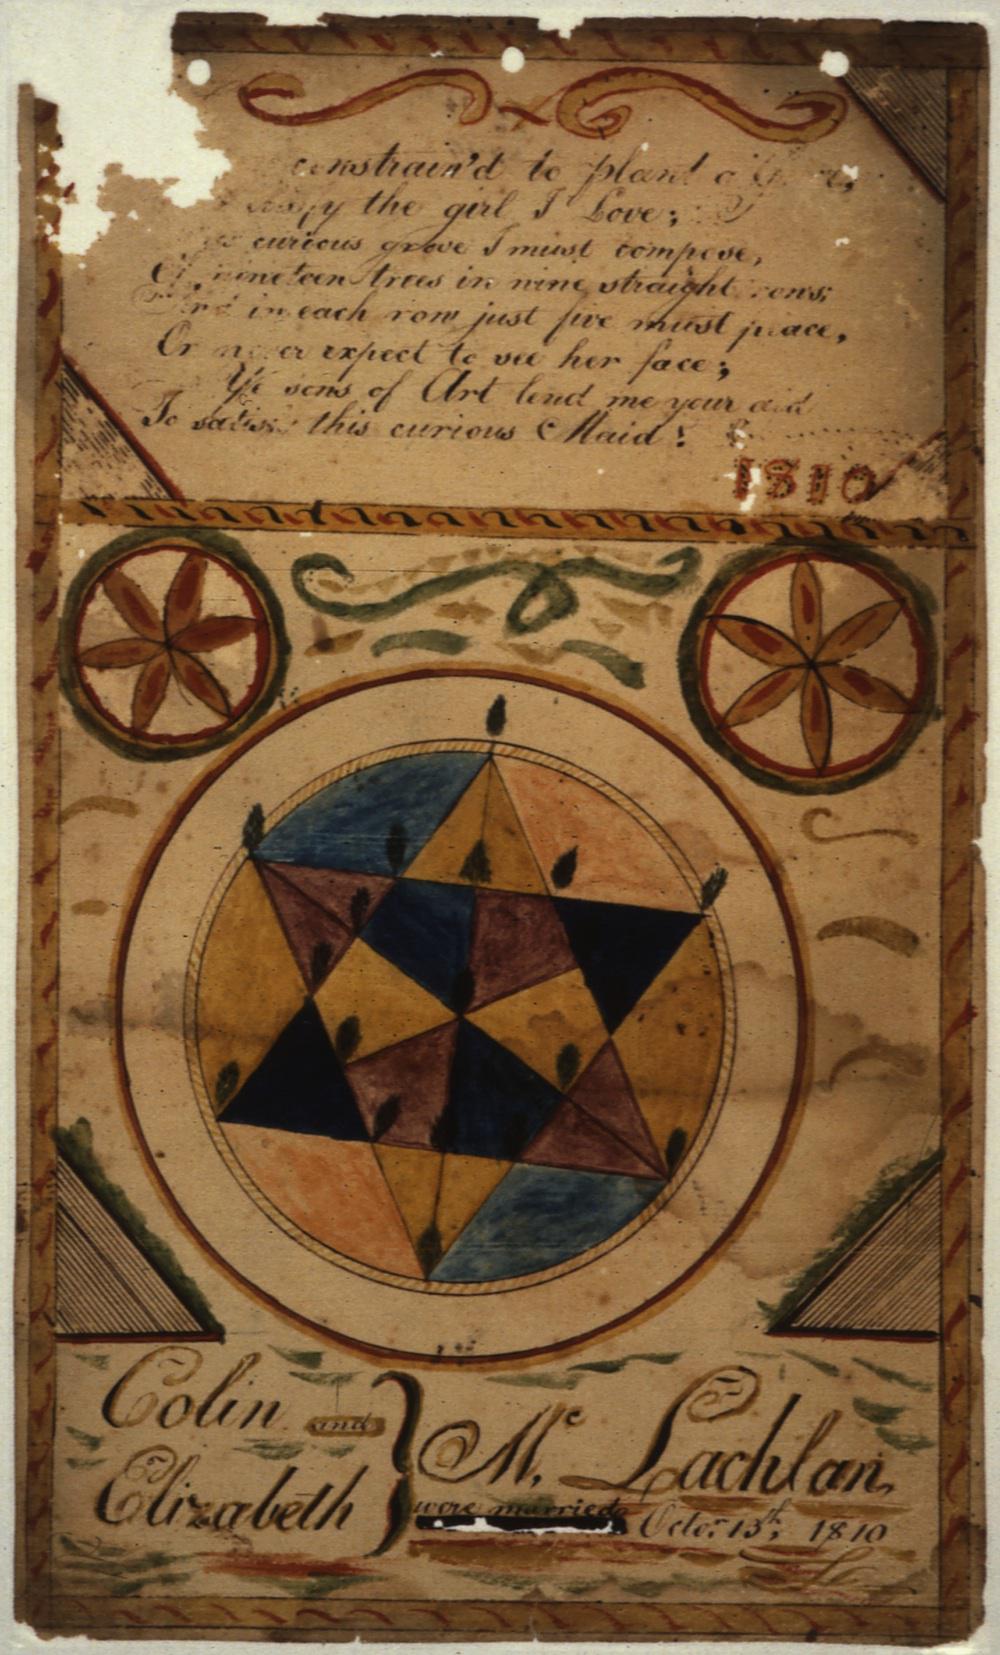 constrain'd to plant a
the girl I Love;
curious grove I must compose,
nineteen trees in nine straight rows;
in each row just five must place,
Or never expect to see her face;
Ye sons of Art lend me your aid
To satisfy this curious Maid!
1810
Colin and
Elizabeth
Mc. Lachlan,
were married
Octo: 13th, 1810